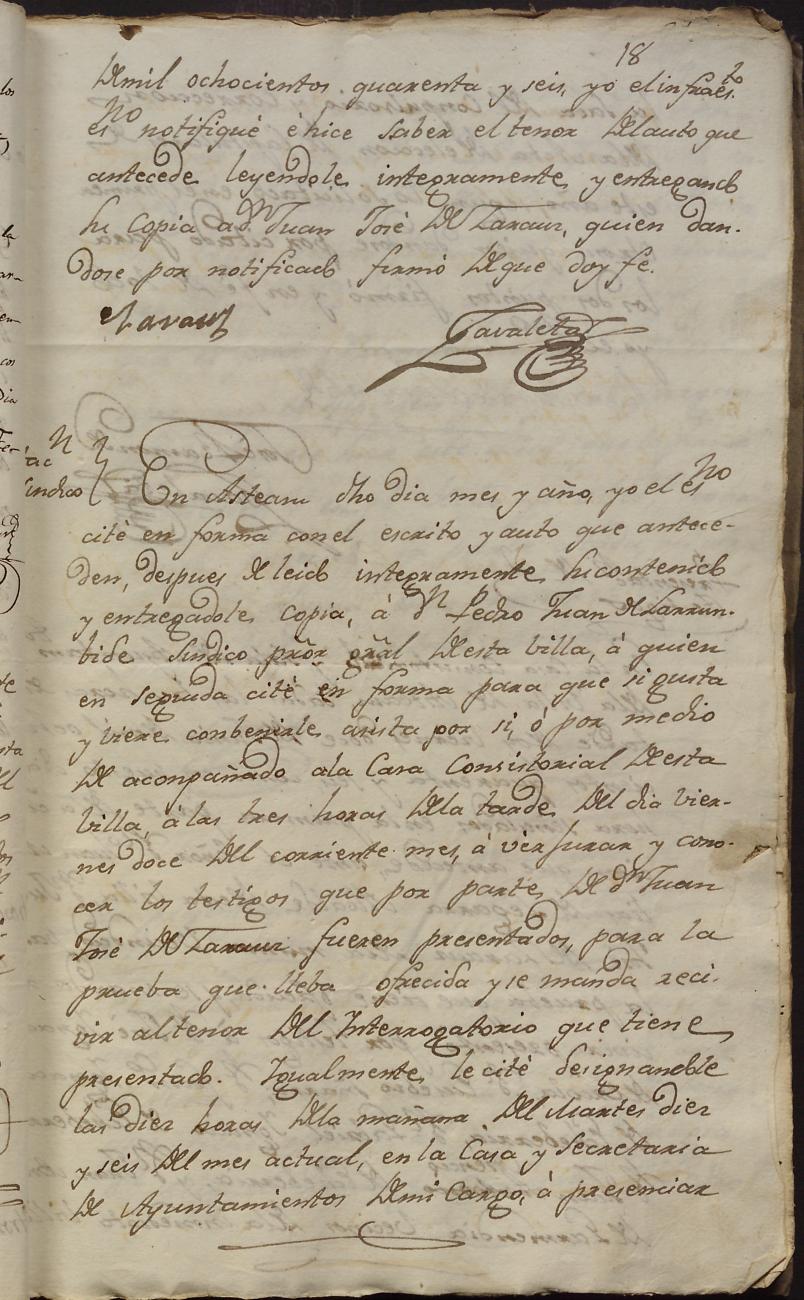 18
de mil ochocientos quarenta y seis, yo el infraes.to
es.no notifiqué é hice saber el tenor del auto que
antecede leyendole integramente y entregando
su copia a D.n Juan José de Zarauz, quien dan-
dose por notificado firmó de que doy fe.
Zarauz Zavaleta
En Asteasu dho dia mes y año, yo el es.no
cité en forma con el escrito y auto que antece-
den, despues de leido integramente su contenido
y entregadole copia, á D.n Pedro Juan de Larrun-
bide Sindico prõr grãl de esta villa, á quien
en seguida cité en forma para que si gusta
y viere conbenirle asista por si, ó por medio
de aconpañado ala Casa Consistorial de esta
villa, á las tres horas dela tarde del dia vier-
nes doce del corriente mes, á vèr jurar y cono-
cer los testigos que por parte de d.n Juan
José de Zarauz fueren presentados, para la
prueba que lleba ofrecida y se manda reci-
vir al tenor del Interrogatorio que tiene
presentado. Igualmente le cité designandole
las diez horas dela mañana del Martes diez
y seis del mes actual, en la Casa y Secretaria
de Ayuntamientos de mi Cargo, á presenciar